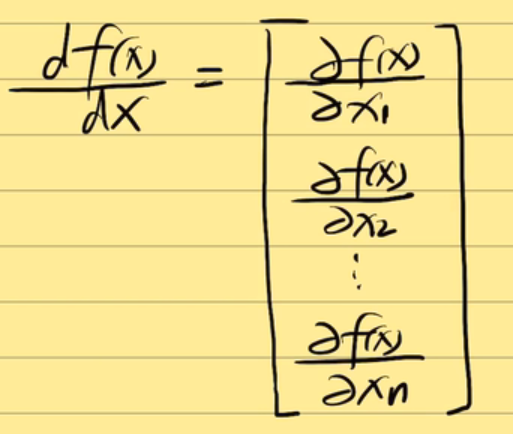 df(x)/dx = [ ∂f(x)/∂x₁
∂f(x)/∂x₂
⋮
∂f(x)/∂xn ]